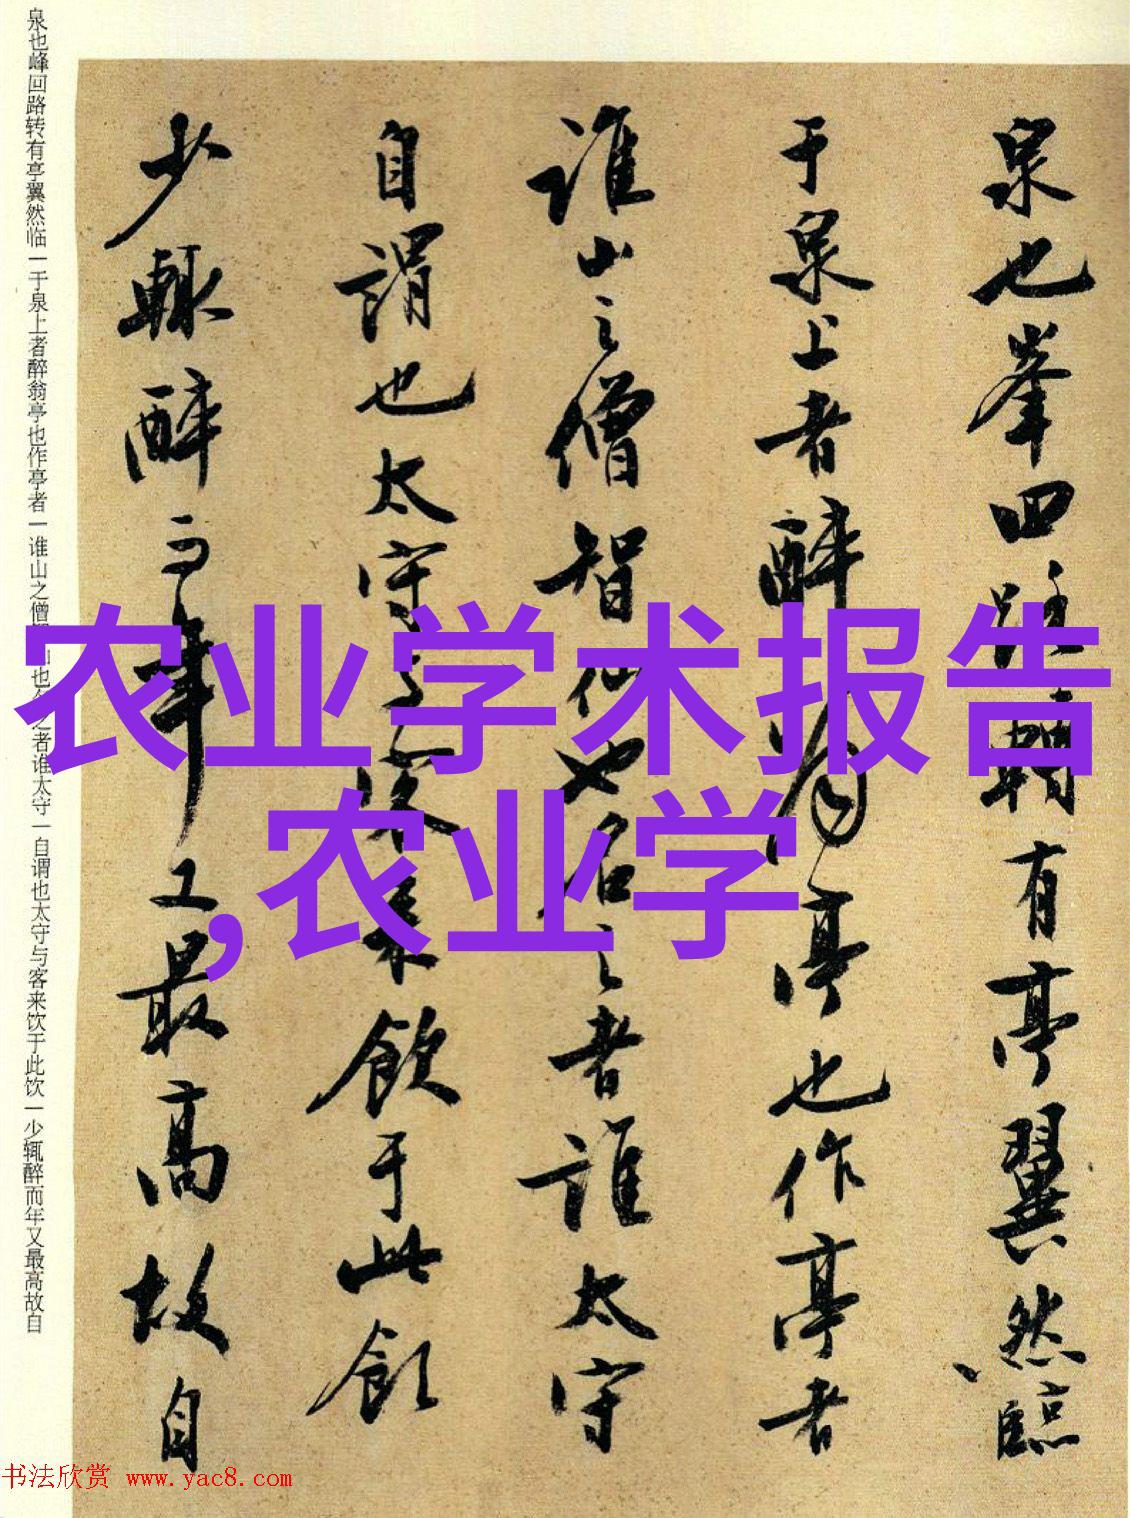 泉也峯回路轉有亭翼然臨
于泉上者醉翁亭也作亭者
誰山之僧智仙也名之者誰太守
自謂也太守与客来飲于此飲
少輒醉而年又最高故自
泉也峰回路转有亭翼然临一于泉上者醉翁亭也作亭者一谁山之僧也之者谁太守一自谓也太守与客来饮于此饮一少辄醉而年又最高故自
农业学术报告
,农业学
书法欣赏 www.yac8.com